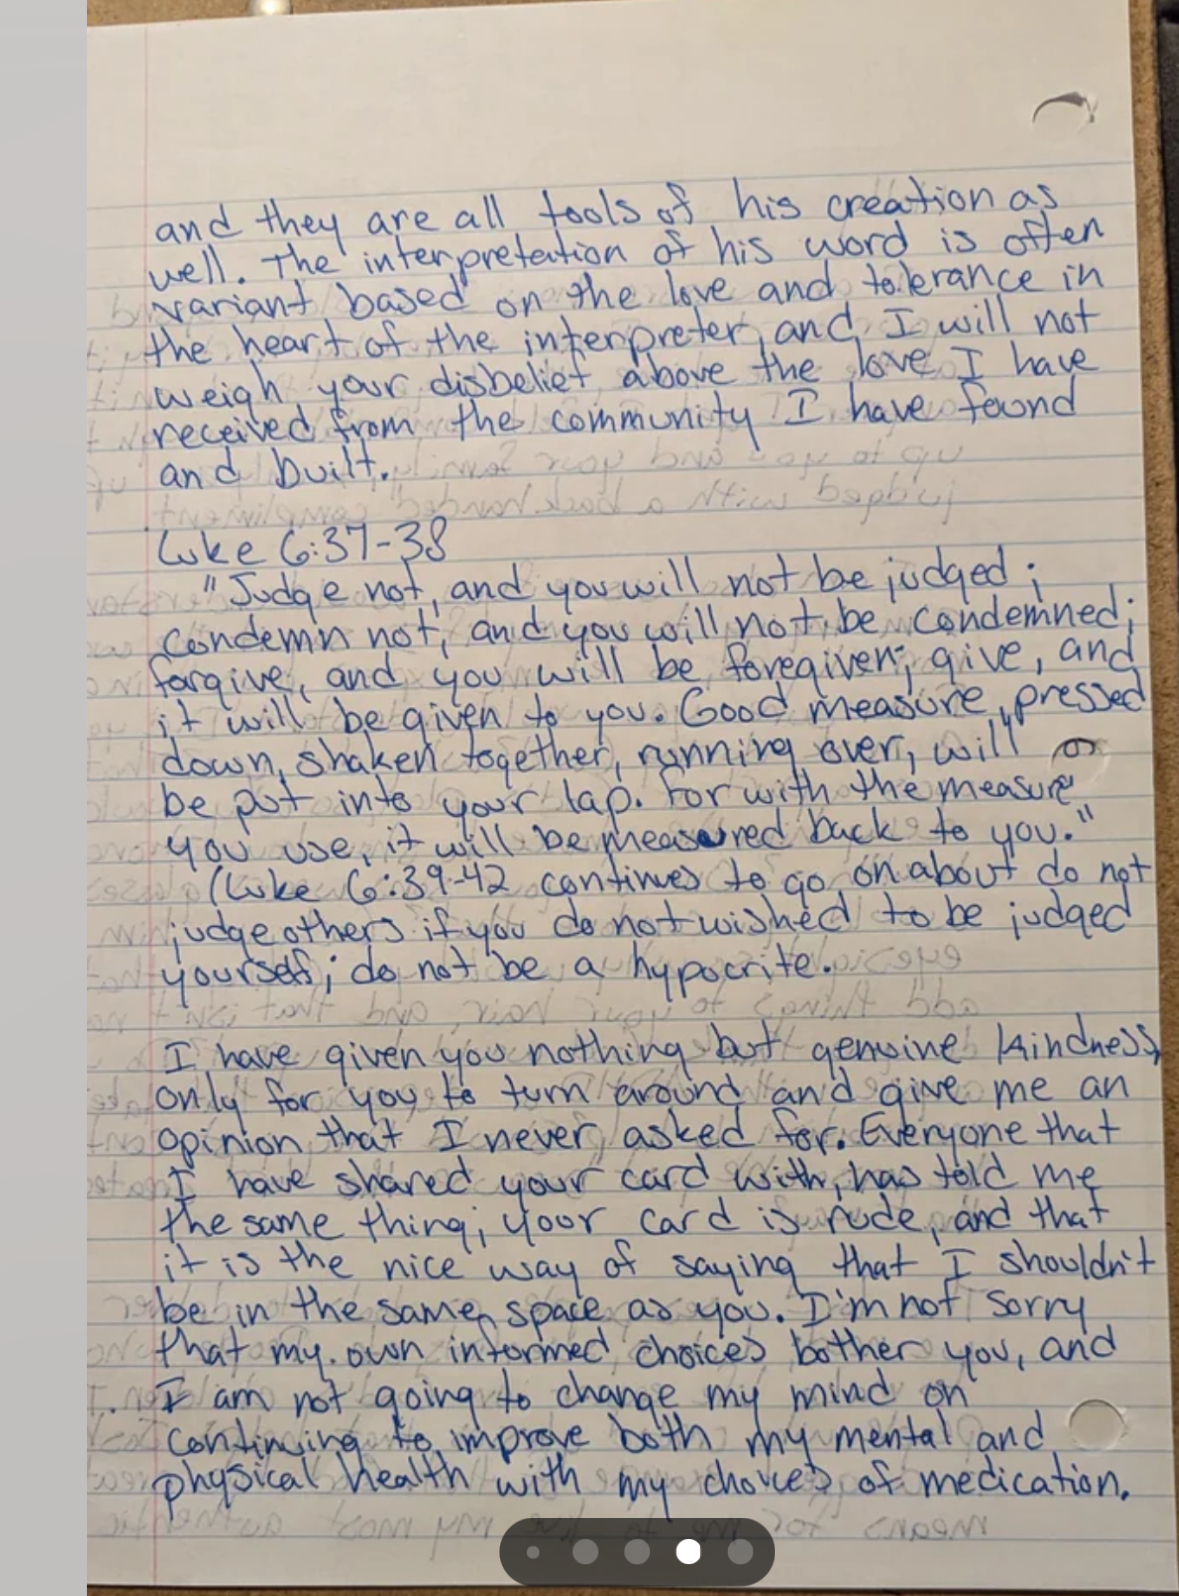 and they are all tools of his creation as
well. The interpretation of his word is often
variant based on the love and tolerance in
the heart of the interpreter, and I will not
weigh your disbelief above the love I have
received from the community I have found
and built.
Luke 6:37-38
"Judge not, and you will not be judged;
condemn not, and you will not be condemned;
forgive, and you will be foregiven; give, and
it will be given to you. Good measure, pressed
down, shaken together, running over, will
be put into your lap. For with the measure
you use, it will be measured back to you."
(Luke 6:39-42 continues to go on about do not
judge others if you do not wished to be judged
yourself; do not be a hypocrite.
I have given you nothing but genuine kindness,
only for you to turn around and give me an
opinion that I never asked for. Everyone that
I have shared your card with, has told me
the same thing; your card is rude, and that
it is the nice way of saying that I shouldn't
be in the same space as you. I'm not sorry
that my own informed choices bother you, and
I am not going to change my mind on
continuing to improve both my mental and
physical health with my choices of medication.